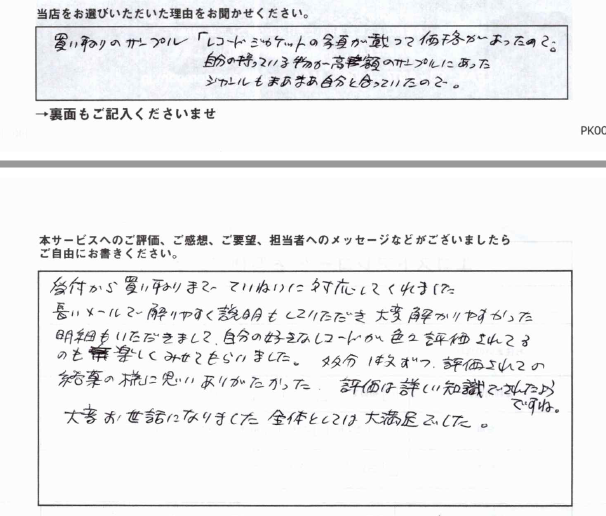 当店をお選びいただいた理由をお聞かせください。
買い取りのサンプル「レコードジャケットの写真が載って価格があったので。
自分の持っている物が高額のサンプルにあった
ジャンルもまあまあ自分と合っていたので。
→裏面もご記入くださいませ
PK00
本サービスへのご評価、ご感想、ご要望、担当者へのメッセージなどがございましたら
ご自由にお書きください。
受付から買い取りまで ていねいに対応してくれました
長いメールで解りやすく説明もしていただき 大変解かりやすかった
明細もいただきまして、自分の好きなレコードが色々評価されてる
のも楽しくみせてもらいました。 多分 1枚ずつ、評価されての
結果の様に思いありがたかった、評価は詳しい知識でされたよう
ですね。
大変お世話になりました 全体としては大満足でした。